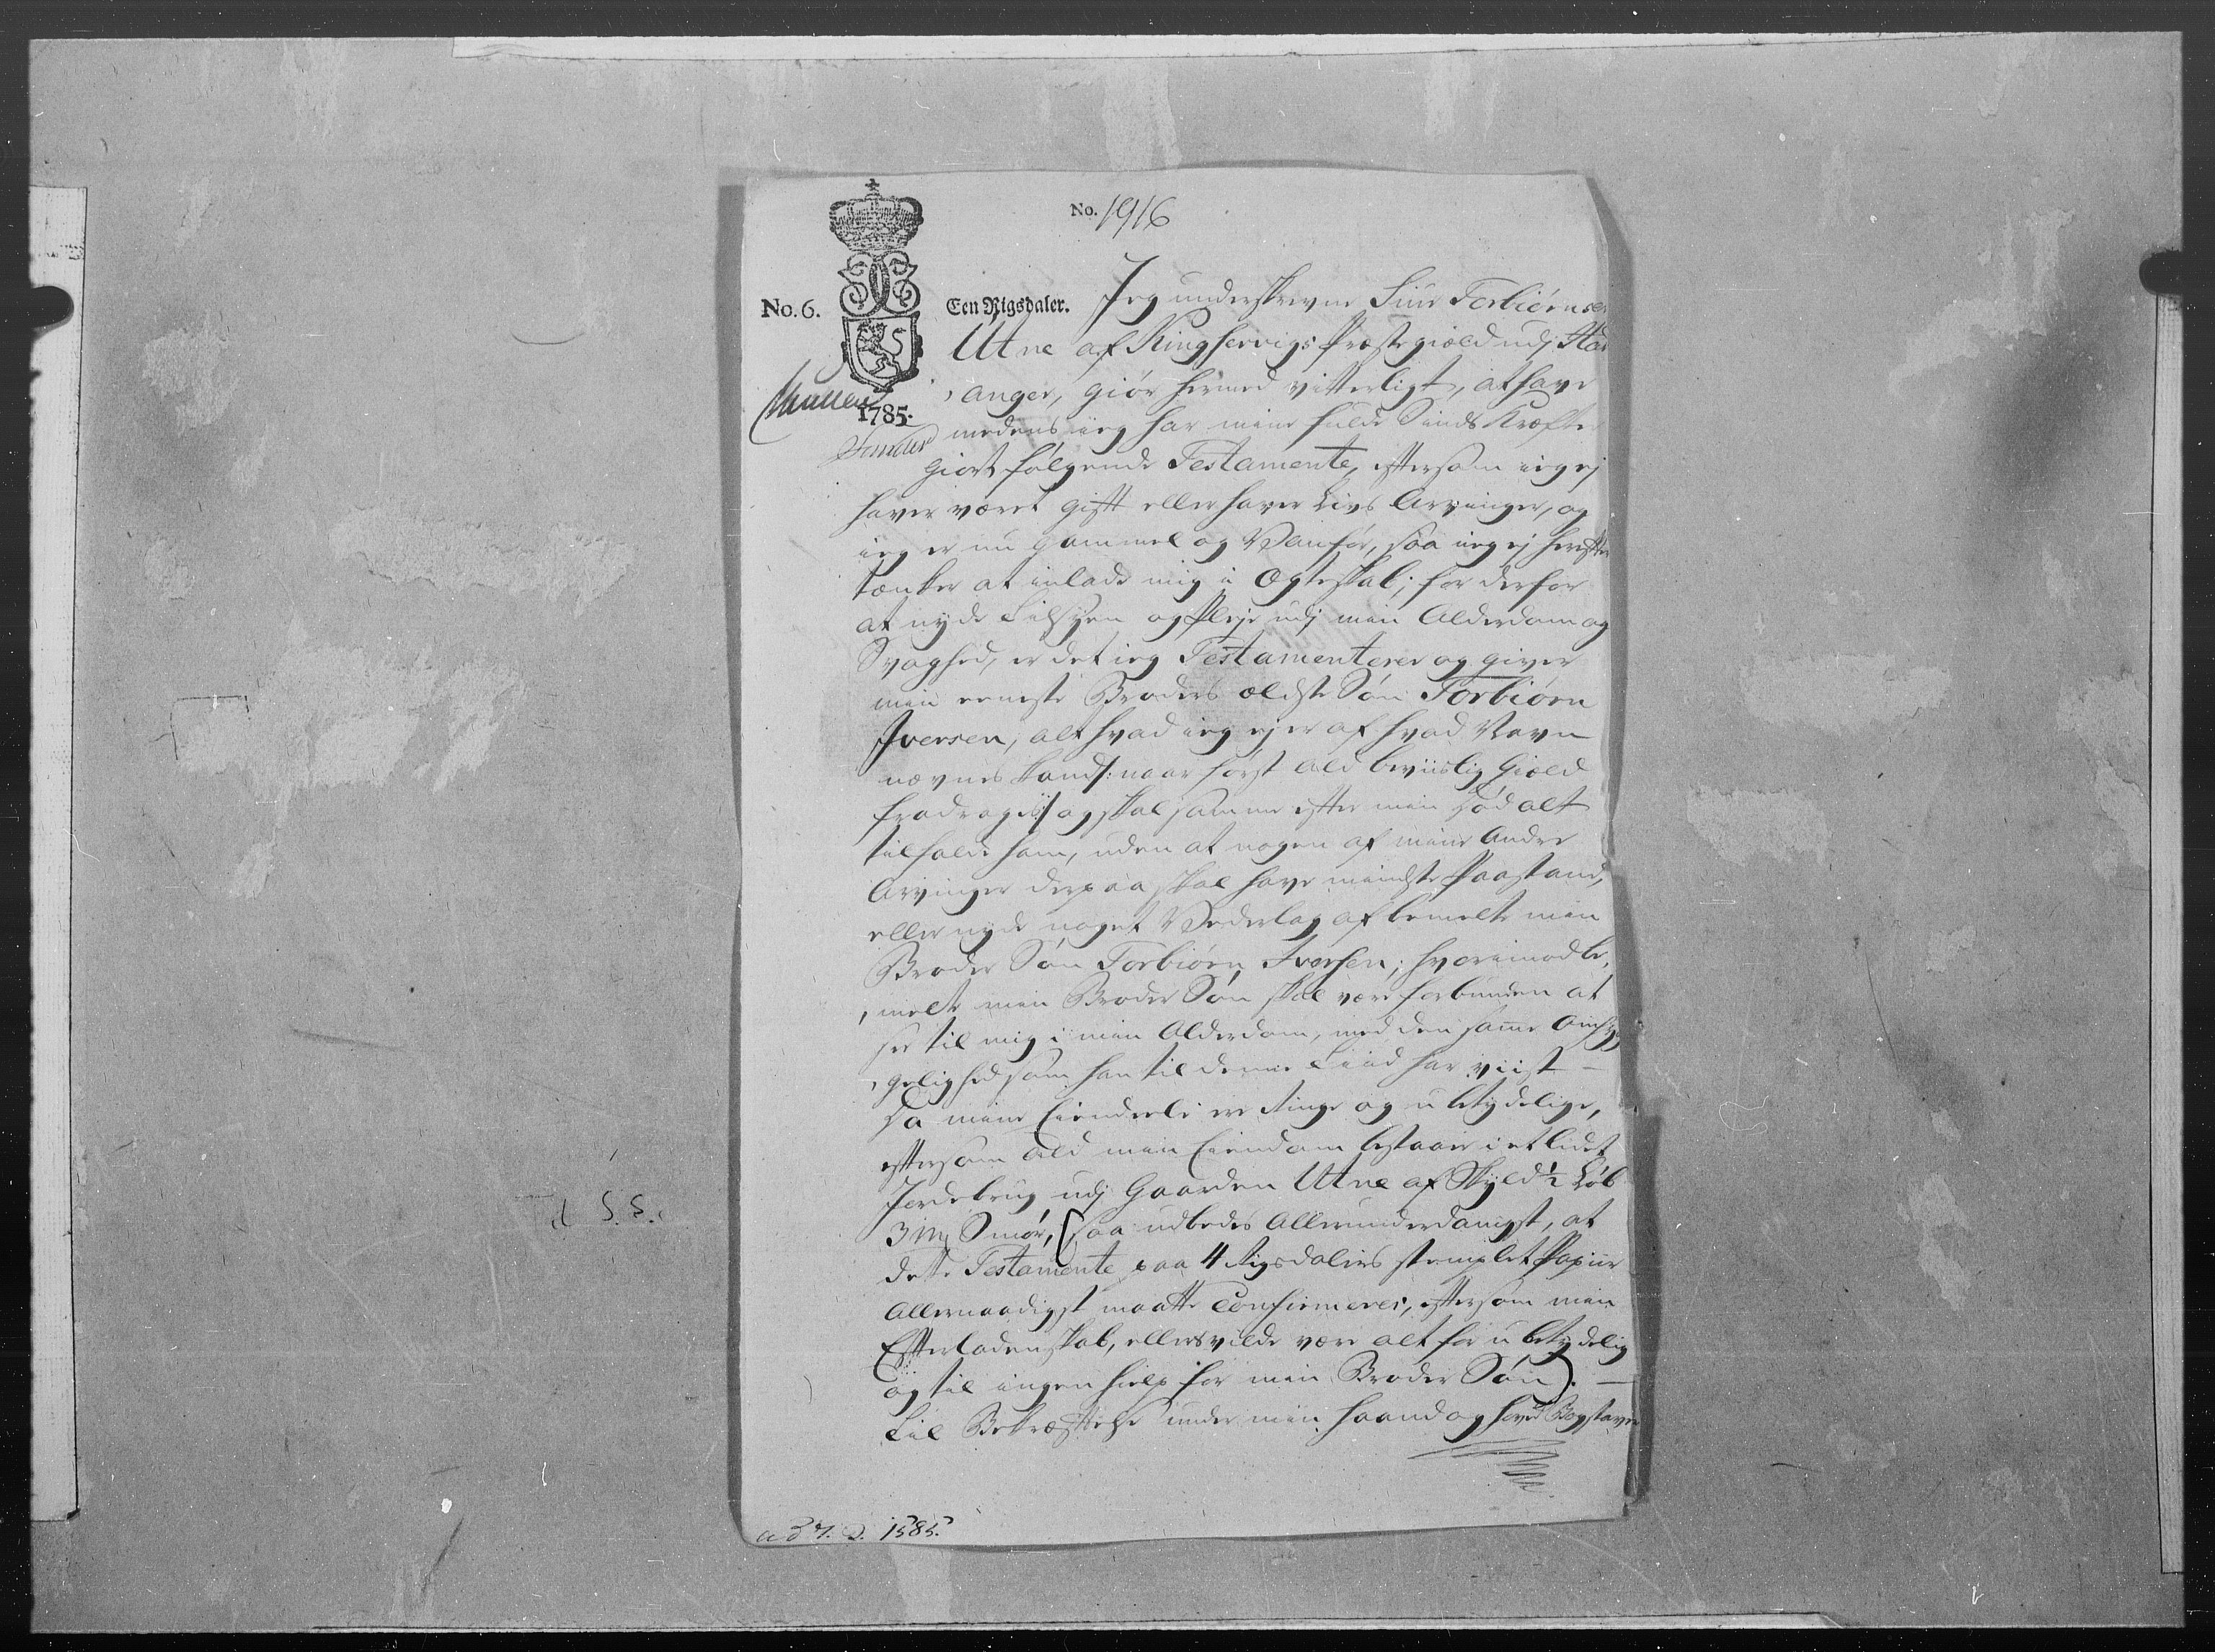 No. 1916
No. 6.
Een Rigsdaler.
1785.
Jeg underskrevne Siur Torbiørnsen
Utne af Kingservigs Præstegield udj Har
anger, giør hermed vitterligt, at have
medens ieg har mine fulde Sinds Kræfter
giort følgende Testamente, eftersom ieg ej
haver været gift eller haver Livs Arvinger, og
ieg er nu gammel og Vanfør, saa ieg ej herefter
tænker at inlade mig i Ægteskab; for derfor
at nyde Tilsyn og Pleje udj min Alderdom og
Svaghed, er det ieg Testamenterer og giver
min eeneste Broders ældste Søn Torbiørn
Iversen, alt hvad ieg ejer af hvad Navn
nævnes kand /: naar først ald beviislig Gield
fradrages :/ og skal samme efter min Død alt
tilfalde ham, uden at nogen af mine Andre
Arvinger derpaa skal have mindste Paastand,
eller nyde noget Vederlag af bemelte min
Broder Søn Torbiørn Iversen; hvorimod be,
,melte min Broder Søn skal være forbunden at
see til mig i min Alderdom, med den samme Omhyg
,gelighed som han til denne Tiid har viist —
Da mine Eiendeele ere Ringe og ubetydelige,
eftersom ald min Eiendom bestaaer i et lidet
Jordebrug udj Gaarden Utne af Skyld ½ Løb
3 mk Smør, (saa udbedes Allerunderdanigst, at
dette Testamente paa 4 Rigsdalers stemplet Papiir
Allernaadigst maatte Confirmeres, eftersom min
Efterladenskab, ellers vilde være alt for ubetydelig
og til ingen hielp for min Broder Søn). —
Til Bekræftelse under min Haand og hoved Bogstaver
Til S. S.
1585.